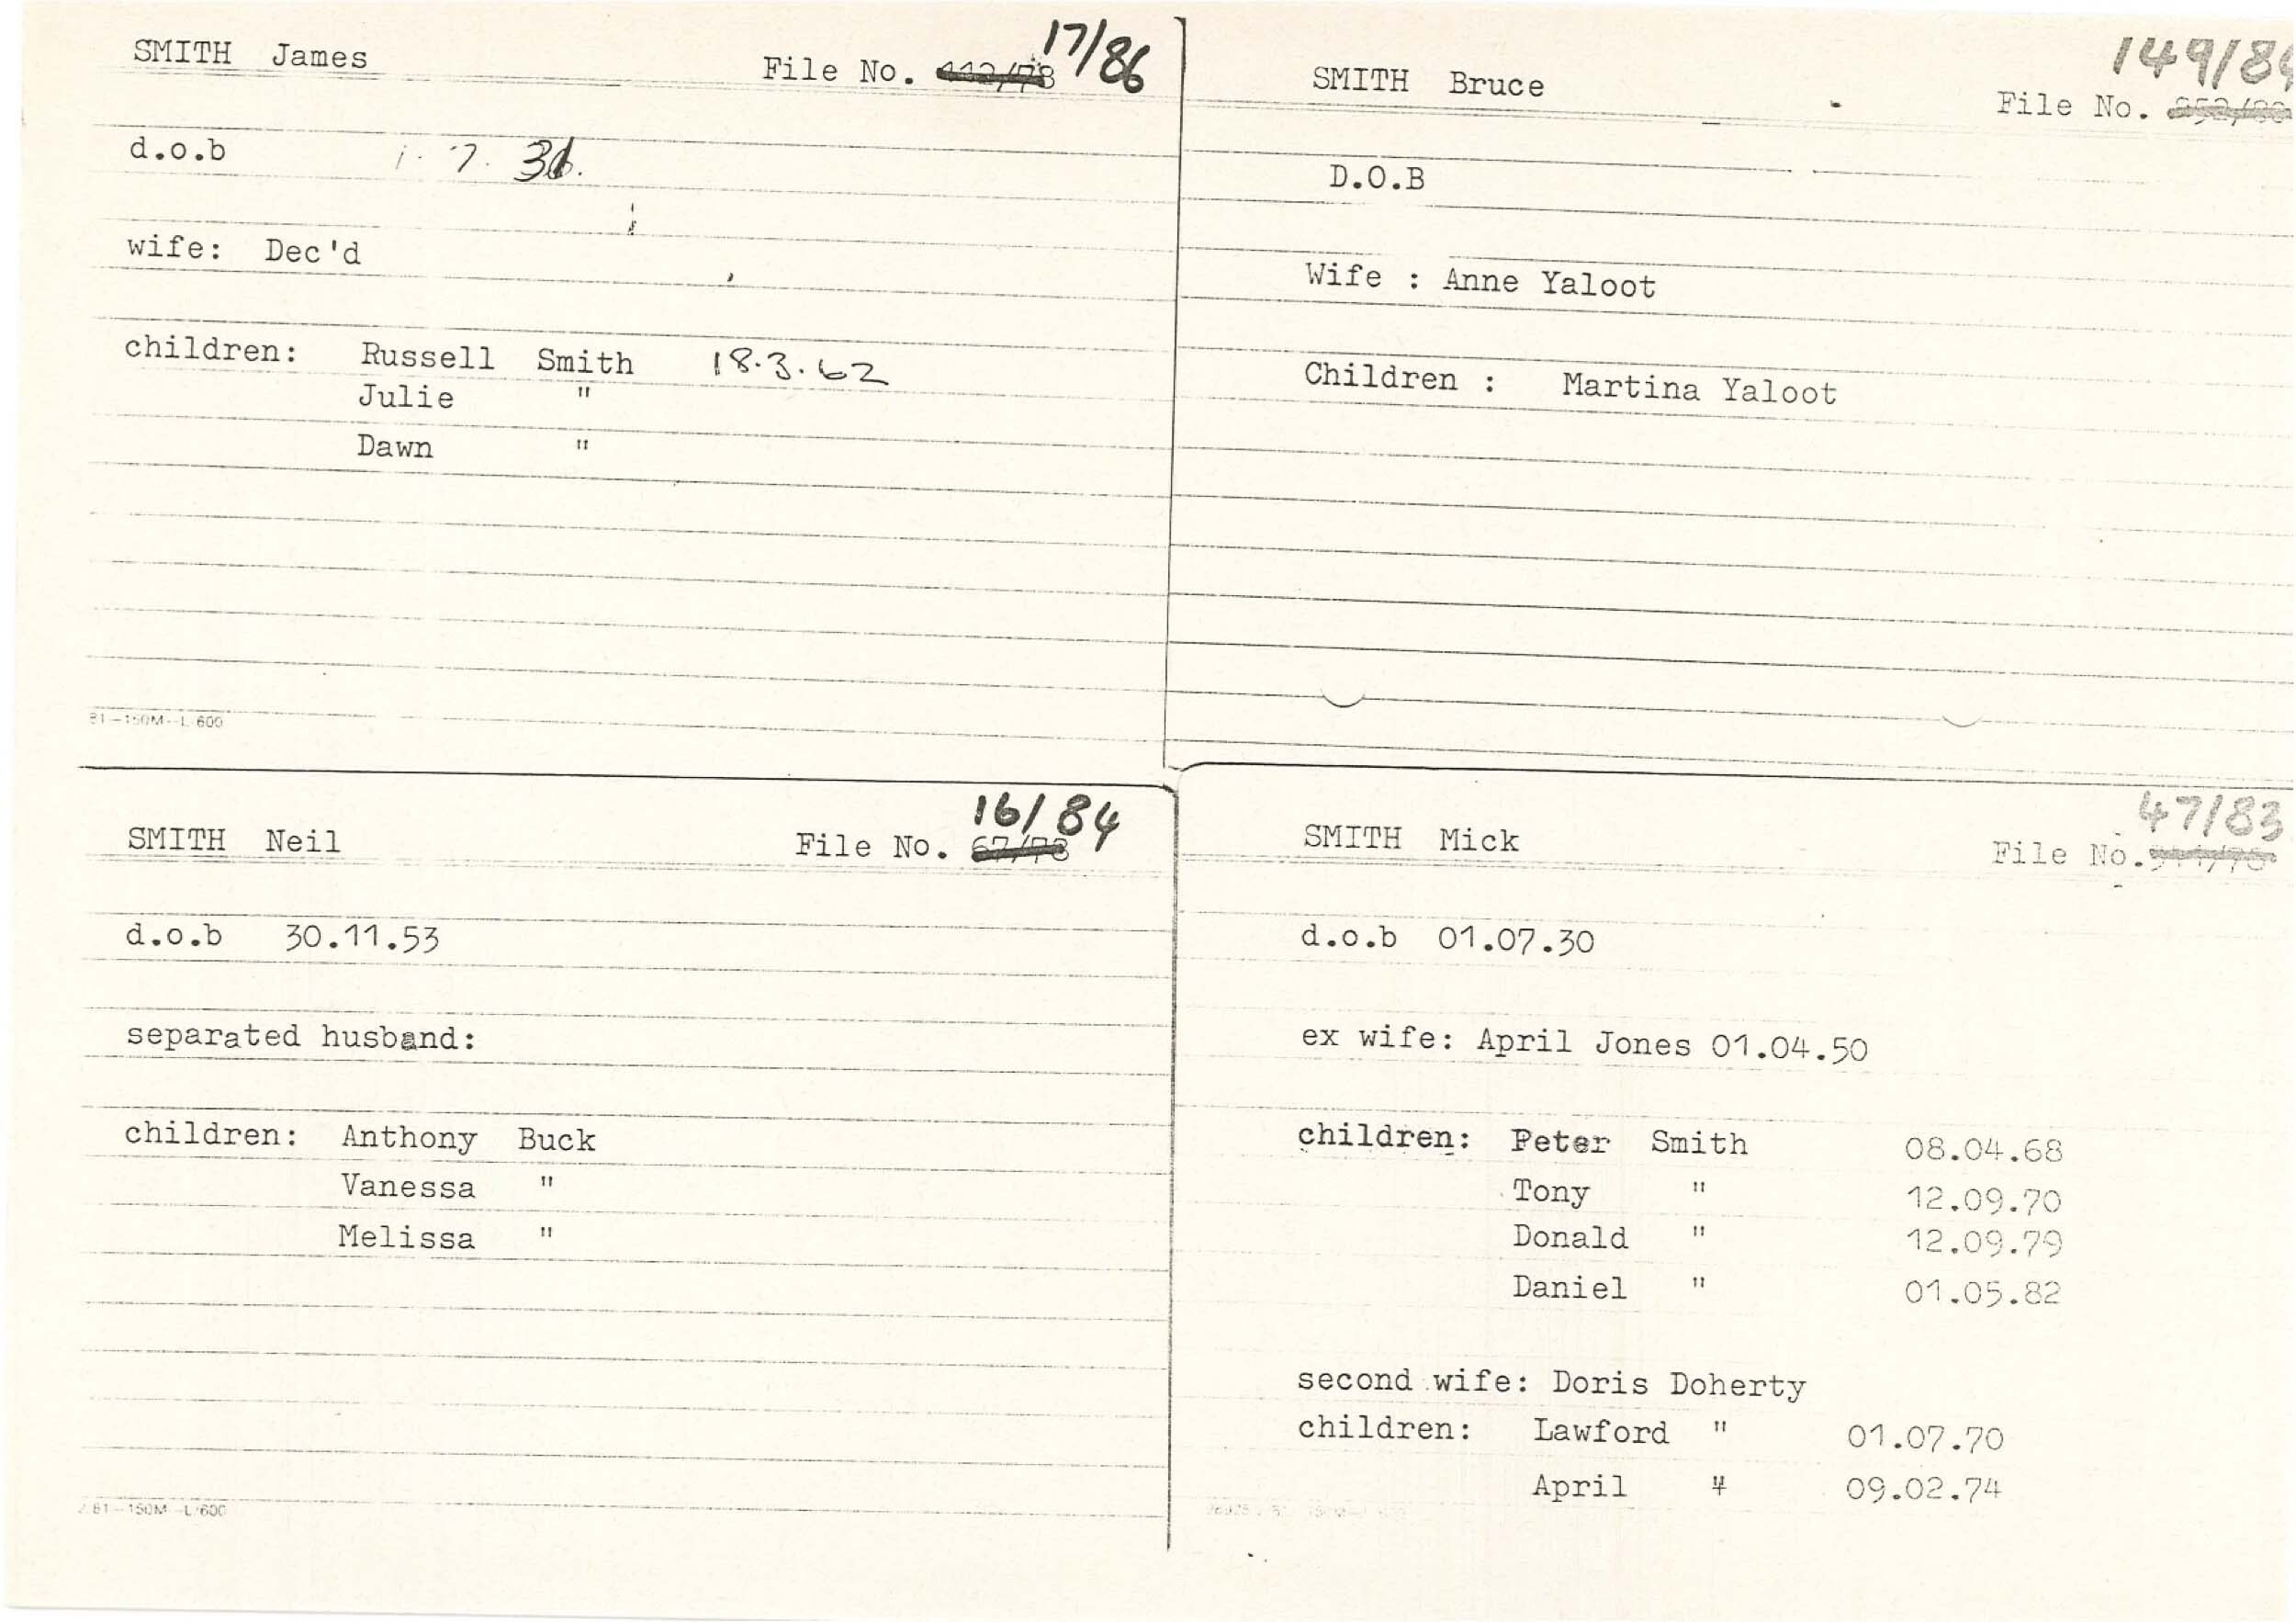 SMITH James
17/86
File No.
d.o.b 1. 7.
wife: Dec'd
children: Russell Smith 18.3.62
Julie "
Dawn "
81-150M-L/600
SMITH Bruce
File No.
D.O.B
Wife : Anne Yaloot
Children : Martina Yaloot
16/84
SMITH Neil File No. 67/78
d.o.b 30.11.53
separated husband:
children: Anthony Buck
Vanessa "
Melissa "
81-150M-L/600
47/83
SMITH Mick File No.
d.o.b 01.07.30
ex wife: April Jones 01.04.50
children: Peter Smith 08.04.68
Tony " 12.09.70
Donald " 12.09.79
Daniel " 01.05.82
second wife: Doris Doherty
children: Lawford " 01.07.70
April " 09.02.74